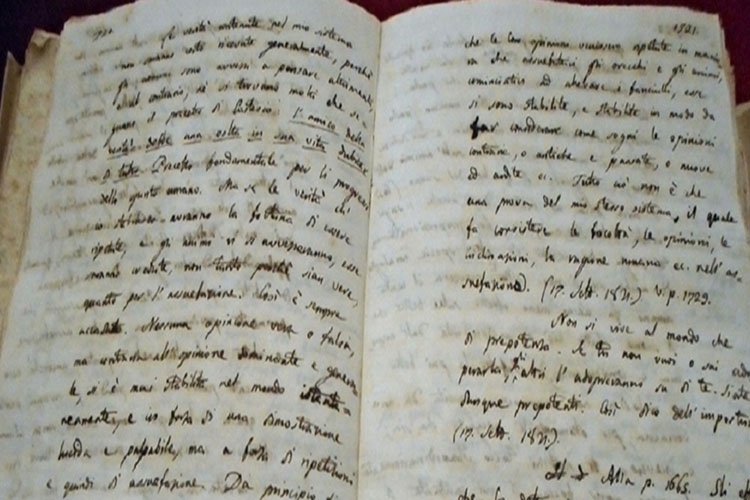 1720
Le verità contenute nel mio sistema
non saranno certo ricevute generalmente, perchè
gli uomini sono avvezzi a pensare altrimenti,
e al contrario, nè si trovano molti che se-
guano il precetto di Cartesio: l'amico della
verità debbe una volta in sua vita dubitar
di tutto. Precetto fondamentale per li progressi
dello spirito umano. Ma se le verità ch'
io stabilisco avranno la fortuna di essere
ripetute, e gli animi vi si avvezzeranno, esse
saranno credute, non tanto perchè sian vere,
quanto per l'assuefazione. Così è sempre
accaduto. Nessuna opinione vera o falsa,
ma contraria all'opinione dominante e genera-
le, si è mai stabilita nel mondo istanta-
neamente, e in forza di una dimostrazione
lucida e palpabile, ma a forza di ripetizioni
e quindi di assuefazione. Da principio
1721.
che le loro opinioni venissero ripetute in manie-
ra che assuefattisi gli orecchi e gli animi,
cominciatosi ad allevare i fanciulli, esse
si sono stabilite, e stabilite in modo da
far considerare come sogni le opinioni
contrarie, o antiche e passate, o nuove
ed ardite ec. Tutto ciò non è che
una prova del mio stesso sistema, il quale
fa consistere le facoltà, le opinioni, le
inclinazioni, la ragione umana ec. nell'as-
suefazione. (17. Sett. 1821.) V. p. 1729.
Non si vive al mondo che
di prepotenza. Se tu non vuoi o sai ado
perarla, gli altri l'adopreranno su di te. Siate
dunque prepotenti. Così dico dell'impostura
(17. Sett. 1821.).
Alla p. 1665. Gli